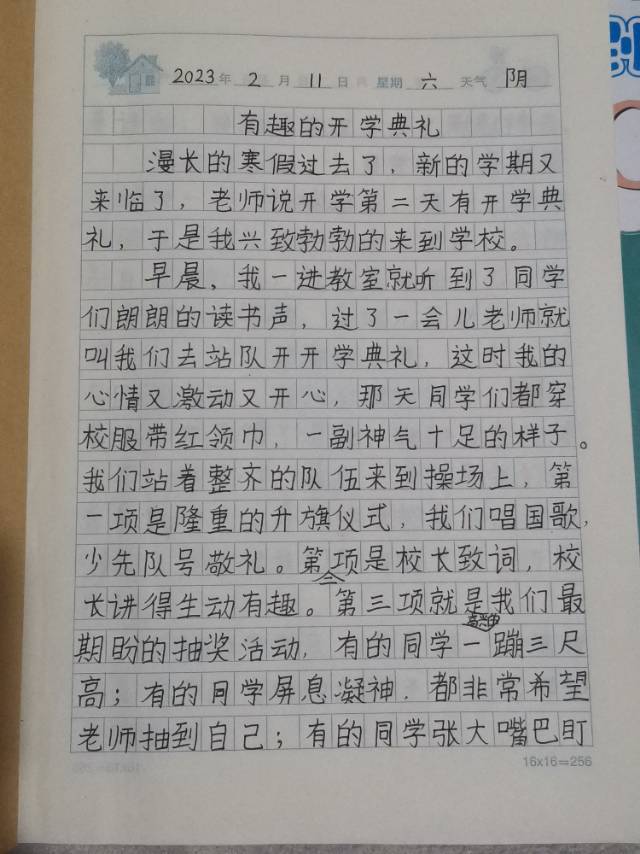 2023年 2月 11日 星期 六 天气 阴
有趣的开学典礼
漫长的寒假过去了，新的学期又
来临了，老师说开学第二天有开学典
礼，于是我兴致勃勃的来到学校。
早晨，我一进教室就听到了同学
们朗朗的读书声，过了一会儿老师就
叫我们去站队开开学典礼，这时我的
心情又激动又开心，那天同学们都穿
校服带红领巾，一副神气十足的样子。
我们站着整齐的队伍来到操场上，第
一项是隆重的升旗仪式，我们唱国歌，
少先队号敬礼。第二项是校长致词，校
长讲得生动有趣。第三项就是我们最
期盼的抽奖活动，有的同学高兴的一蹦三尺
高；有的同学屏息凝神．都非常希望
老师抽到自己；有的同学张大嘴巴盯
16x16=256